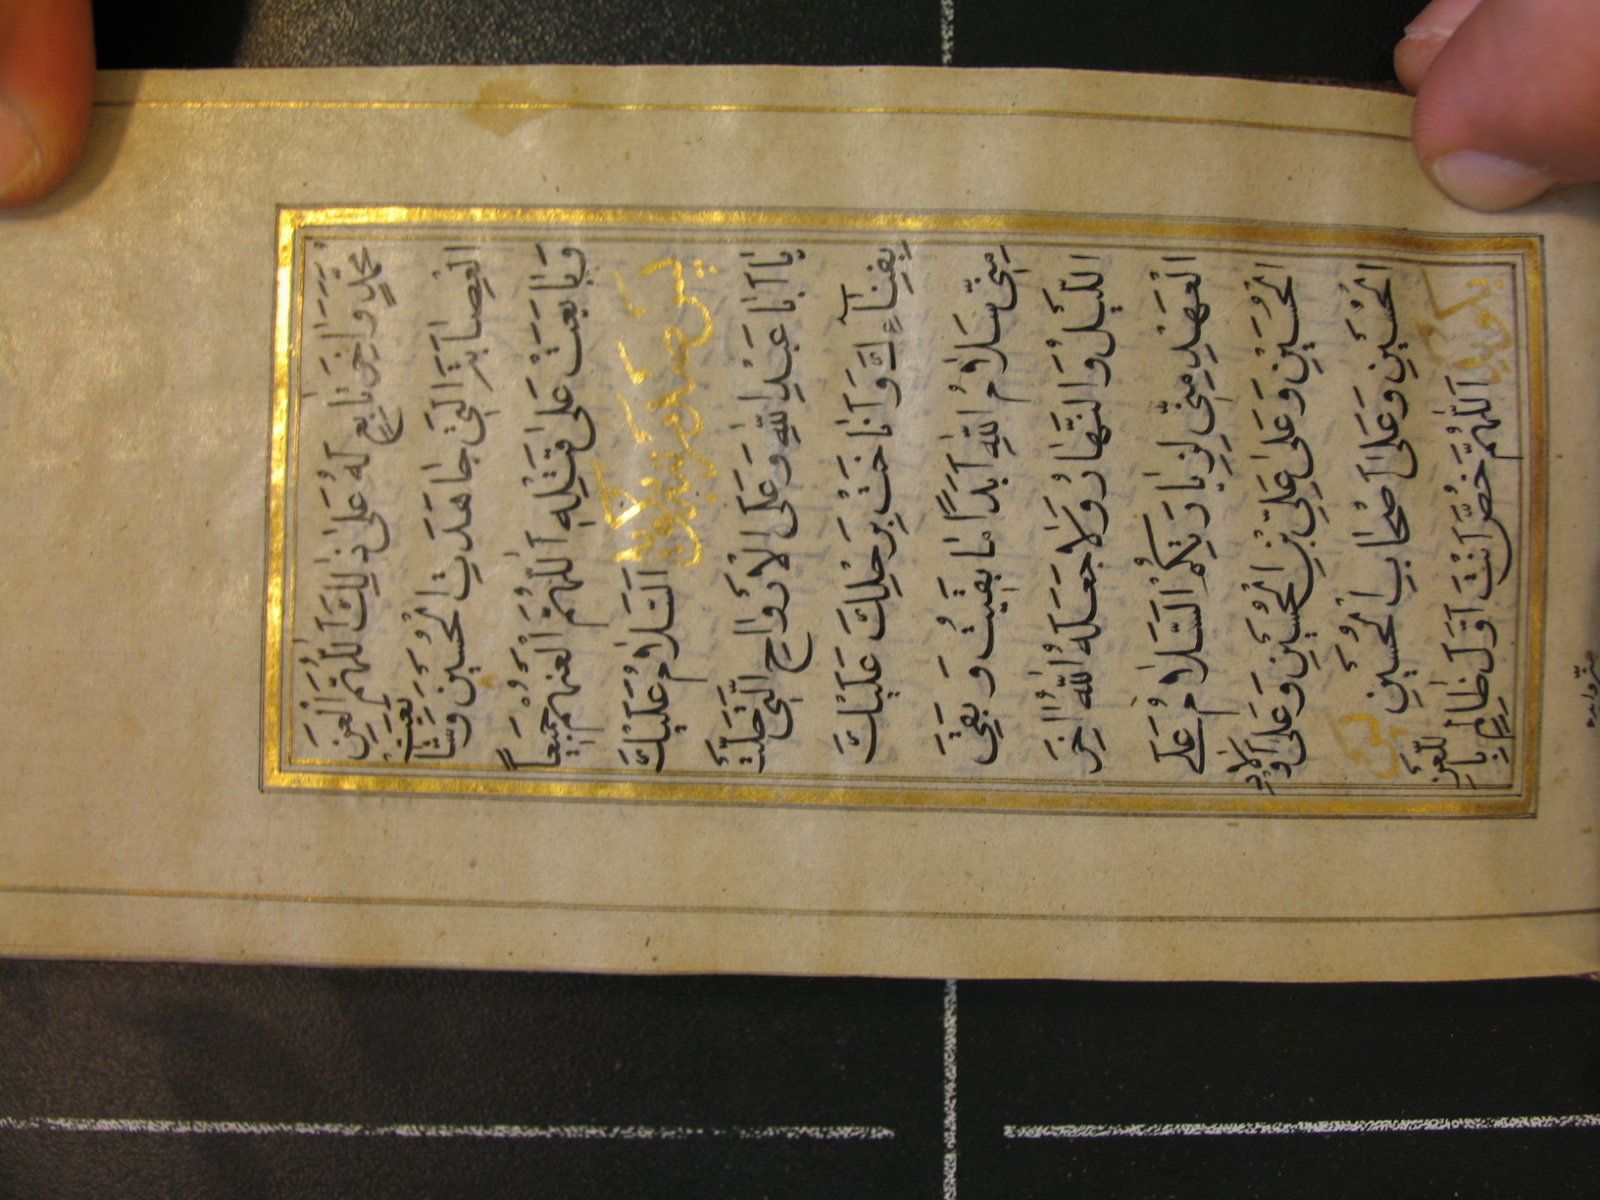 مُحَمَّدٍ وَاٰخِرَ تَابِعٍ لَهُ عَلٰى ذٰلِكَ اَللّٰهُمَّ الْعَنِ
الْعِصَابَةَ الَّتِى جَاهَدَتِ الْحُسَيْنَ وَشَايَعَتْ
وَبَايَعَتْ عَلٰى قَتْلِهِ اَللّٰهُمَّ الْعَنْهُمْ جَمِيعًا
پس صد مرتبه بگوید اَلسَّلَامُ عَلَيْكَ
يَا اَبَا عَبْدِ اللّٰهِ وَعَلَى الْاَرْوَاحِ الَّتِى حَلَّتْ
بِفِنَآءِكَ وَاَنَاخَتْ بِرَحْلِكَ عَلَيْكَ
مِنِّى سَلَامُ اللّٰهِ اَبَدًا مَا بَقِيتُ وَبَقِىَ
اللَّيْلُ وَالنَّهَارُ وَلَا جَعَلَهُ اللّٰهُ اٰخِرَ
الْعَهْدِ مِنِّى لِزِيَارَتِكُمْ اَلسَّلَامُ عَلَى
الْحُسَيْنِ وَعَلٰى عَلِىِّ بْنِ الْحُسَيْنِ وَعَلٰى اَوْلَادِ
الْحُسَيْنِ وَعَلٰى اَصْحَابِ الْحُسَيْنِ پس
بگوید اَللّٰهُمَّ خُصَّ اَنْتَ اَوَّلَ ظَالِمٍ بِاللَّعْنِ
منّى وابدء